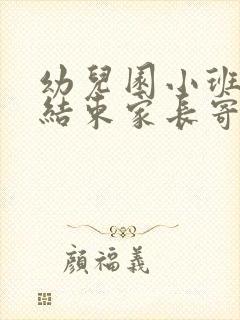 幼兒園小班
結束家長寄
顏福義